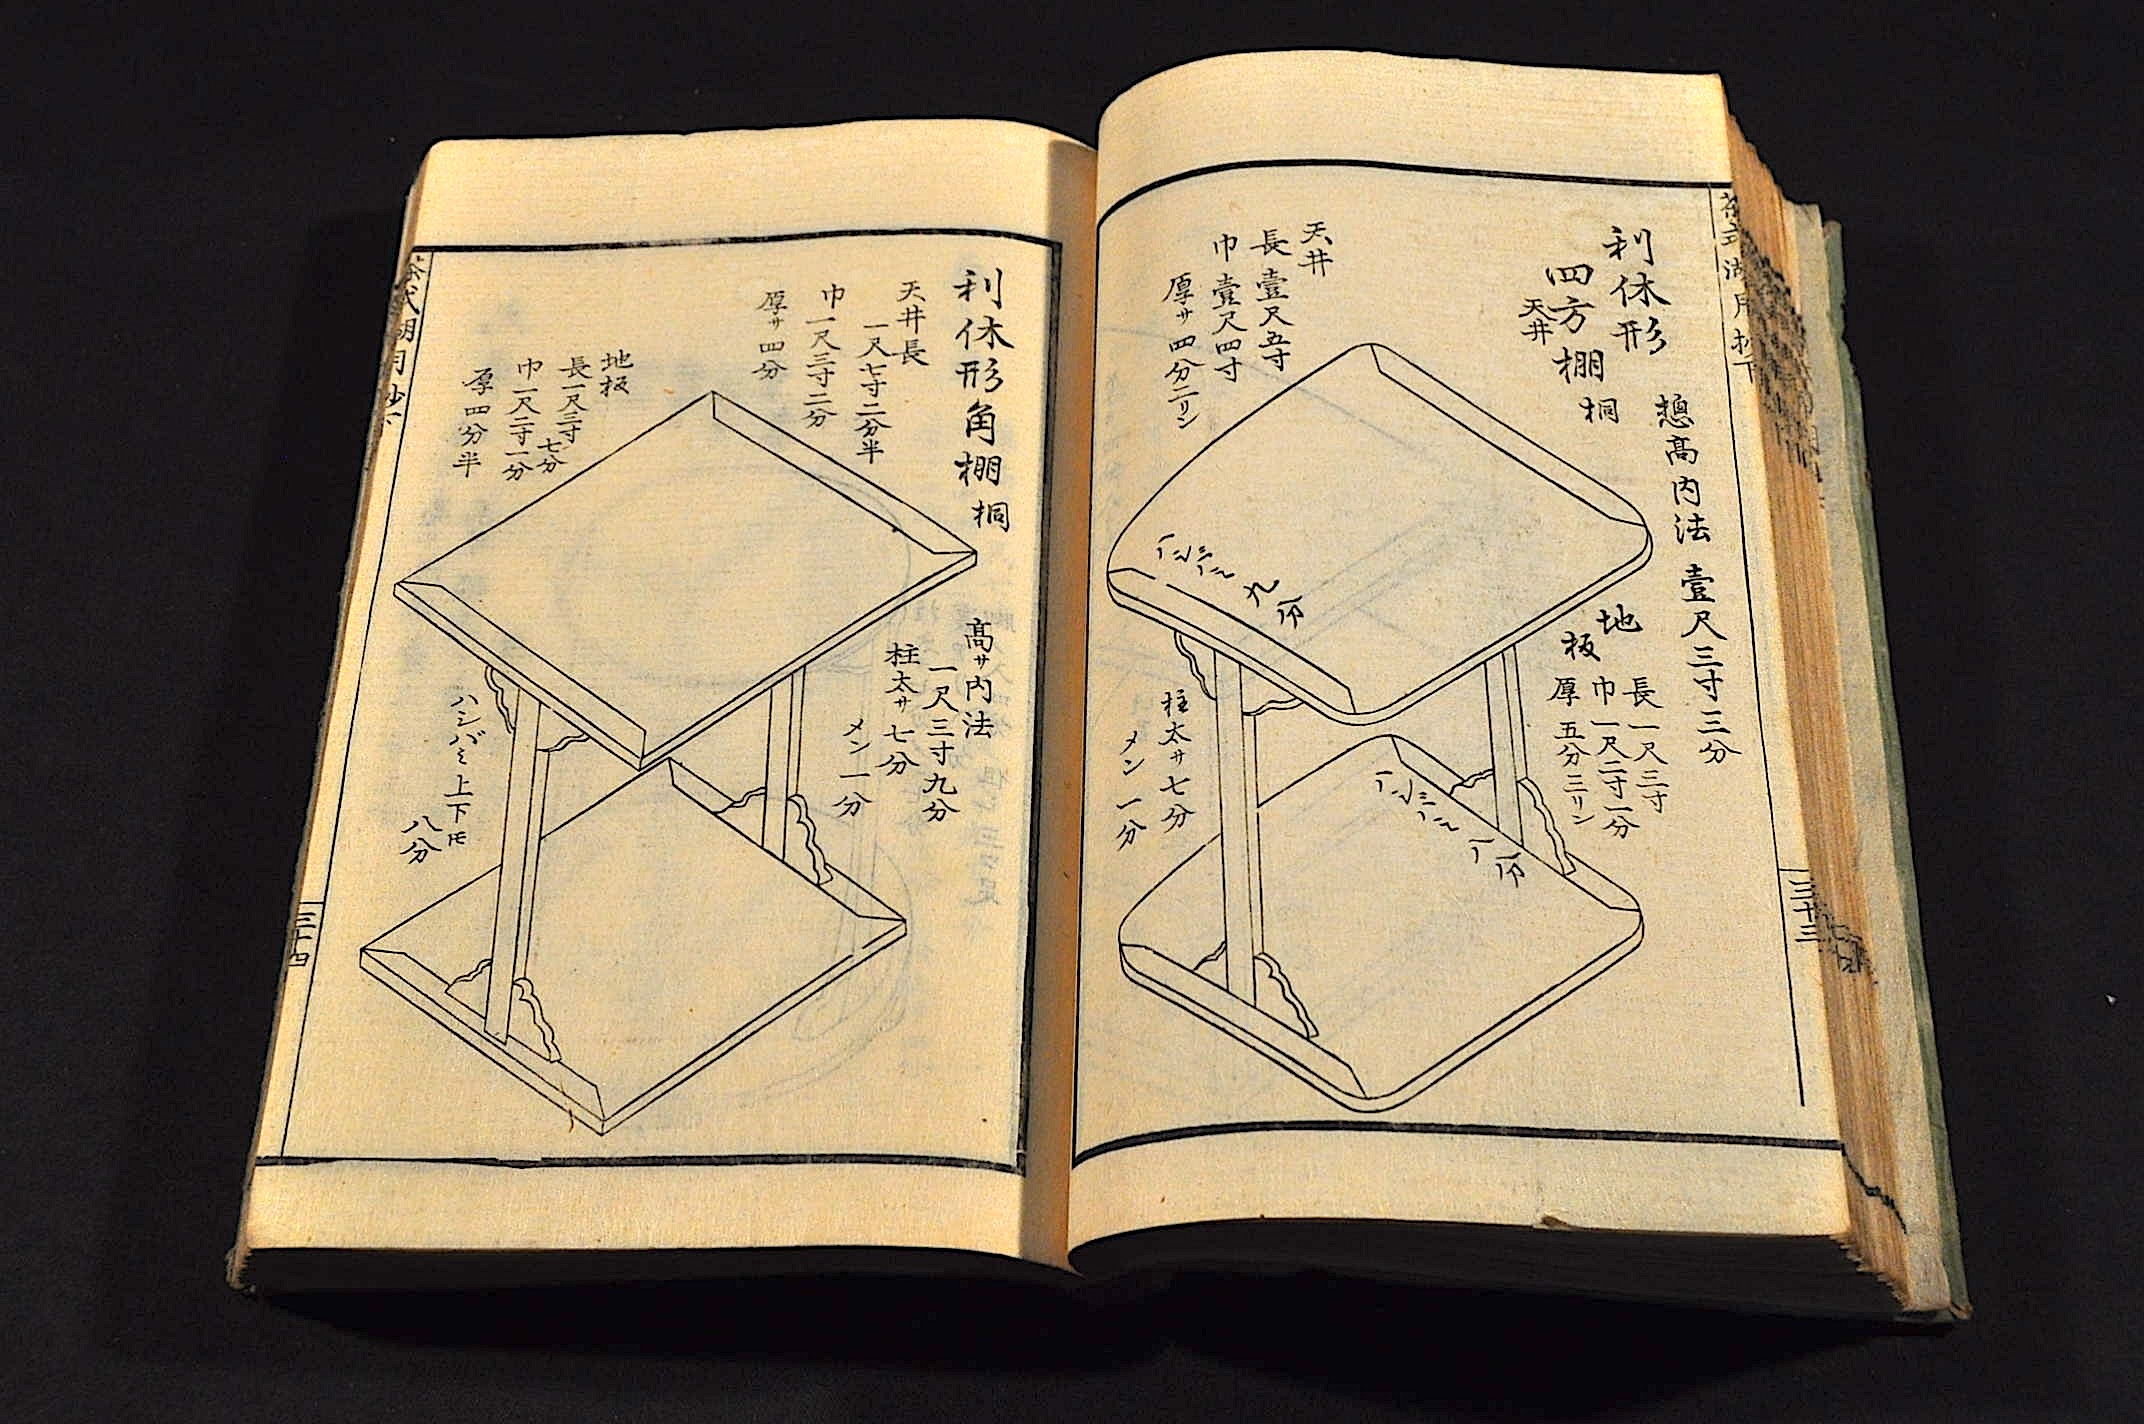 利休形
四方棚 桐
惣高内法 壹尺三寸三分
天井
天井
長 壹尺五寸
巾 壹尺四寸
厚サ 四分二リン
地板
長一尺三寸
巾一尺二寸一分
厚 五分三リン
ハシハミ 九分
ハシハミ 八分
柱太サ七分
メン一分
三十三
利休形角棚 桐
天井長
一尺七寸二分半
巾一尺三寸二分
厚サ四分
地板
長一尺三寸七分
巾一尺二寸一分
厚四分半
高サ内法
一尺三寸九分
柱太サ七分
メン一分
ハシバミ上下トモ
八分
三十四